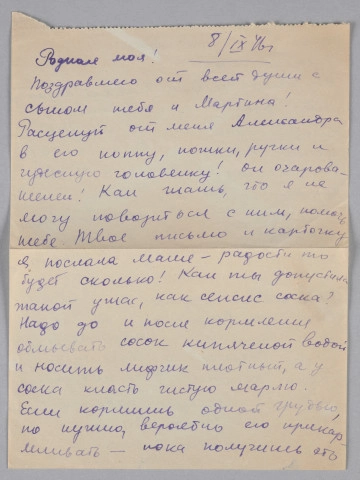 8/IX 46г
Родная моя!
Поздравляю от всей души с
сыном тебя и Мартина!
Расцелуй от меня Александра
в его попку, ножки, ручки и
чудесную головенку! Он очарова-
телен! Как жаль, что я не
могу повозиться с ним, помочь
тебе. Твое письмо и карточку
я послала Маше – радости то
будет сколько! Как ты допустила
такой ужас, как сепсис соска?
Надо до и после кормления
обмывать сосок кипяченой водой
и носить лифчик плотный, а у
соска класть чистую марлю.
Если кормишь одной грудью,
то нужно, вероятно его прикар-
мливать — пока получишь